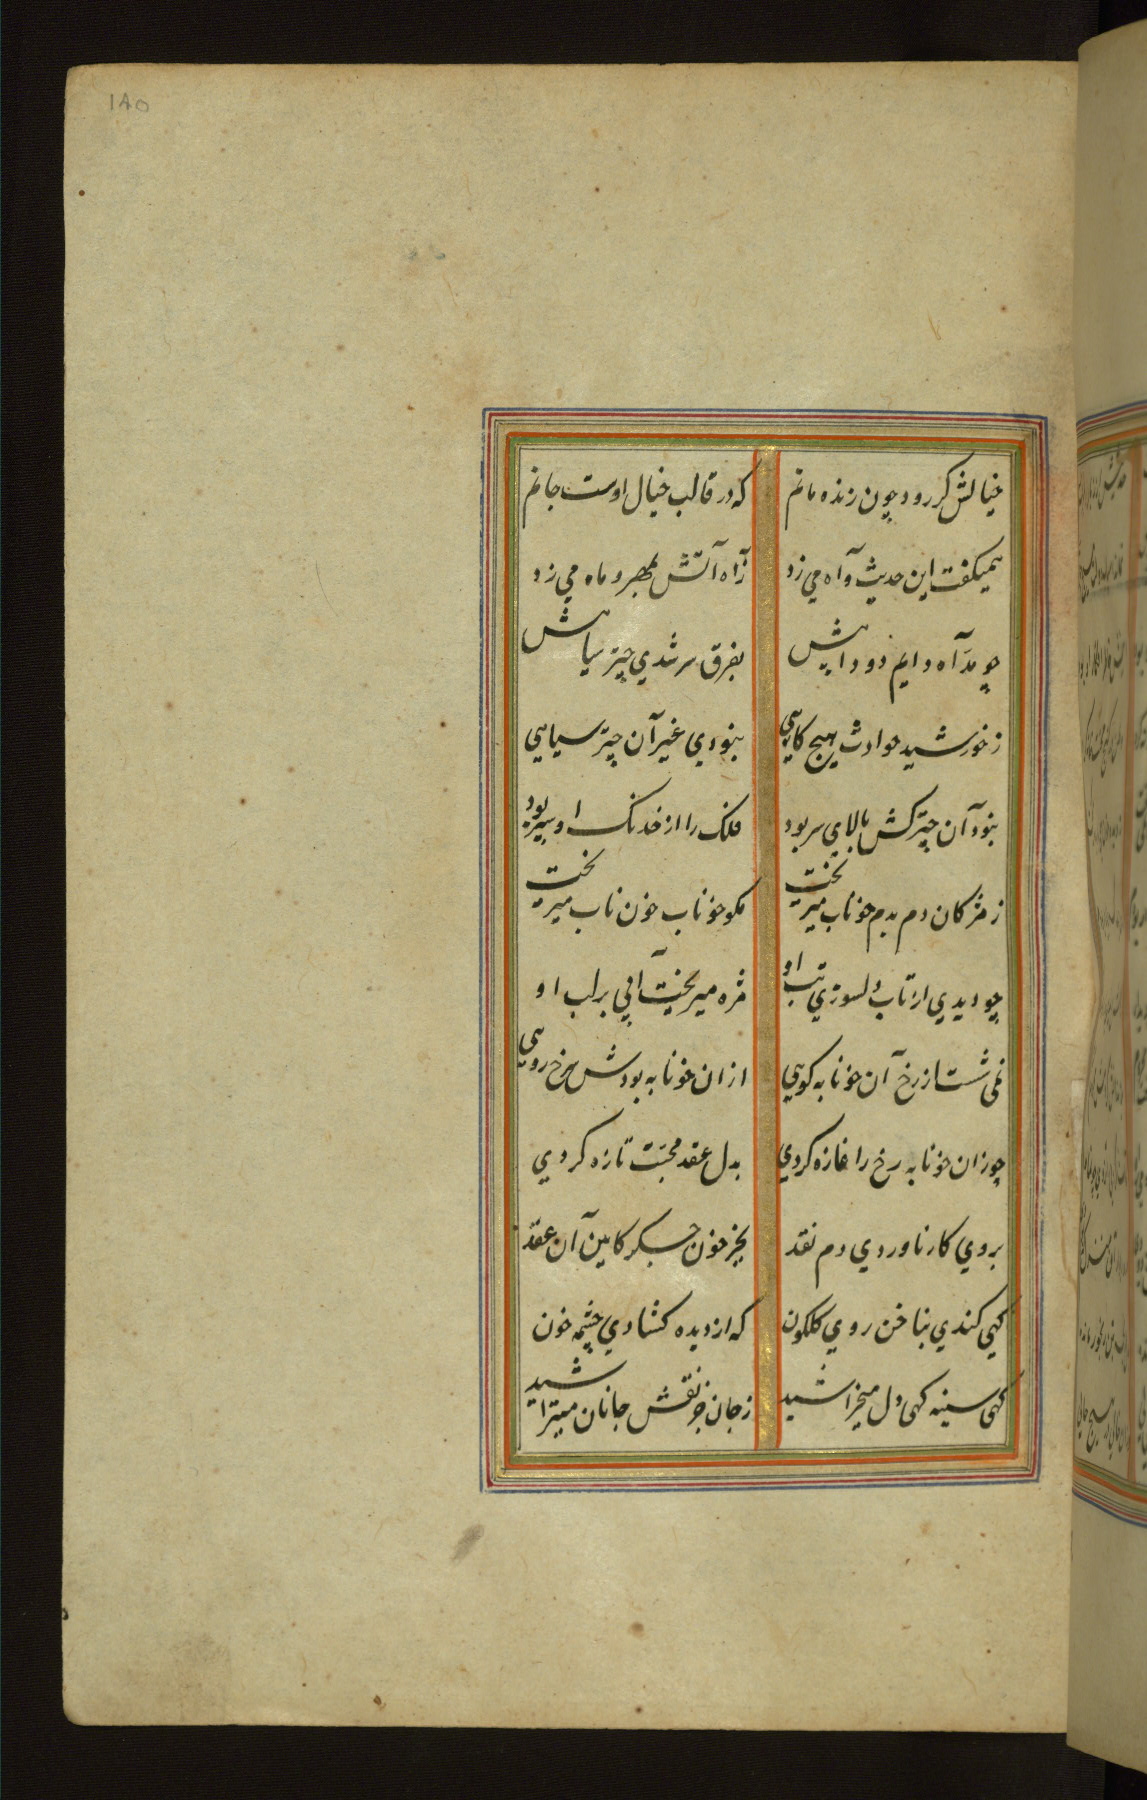 ١٨٥
خیالش گر رود چون زنده مانم که در قالب خیال اوست جانم
همیگفت این حدیث و آه می زد ز آه آتش بمهر و ماه می زد
چو مد آه دایم دود راهش بفرق سر شدی چتر سیاهش
ز خورشید حوادث هیچ گاهی نبودی غیر آن چتر سیاهی
نبود آن چتر کش بالای سر بود فلک را از خدنگ او سپر بود
ز مژگان دم بدم خوناب میریخت مگو خوناب خون ناب میریخت
چو دیدی از تاب دلسوزی تب او مژه میریخت آبی بر لب او
نمی شست از رخ آن خونابه گویی از ان خونابه بودش سرخ رویی
چو زان خونابه رخ را غازه کردی بدل عقد محبت تازه کردی
بروی کار ناوردی دم نقد بجز خون جگر کابین آن عقد
گهی کندی بناخن روی گلگون که از دیده گشادی چشمه خون
گهی سینه گهی دل میخراشید ز جان جز نقش جانان میتراشید